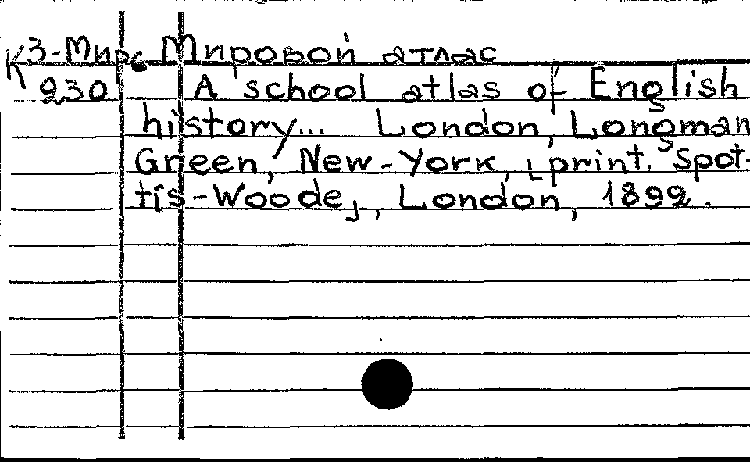 К3-Мир. Мировой атлас
К 930 A school atlas of English
history... London, Longman's
Green, New-York, [print. Spot-
tis-Woode], London, 1892.